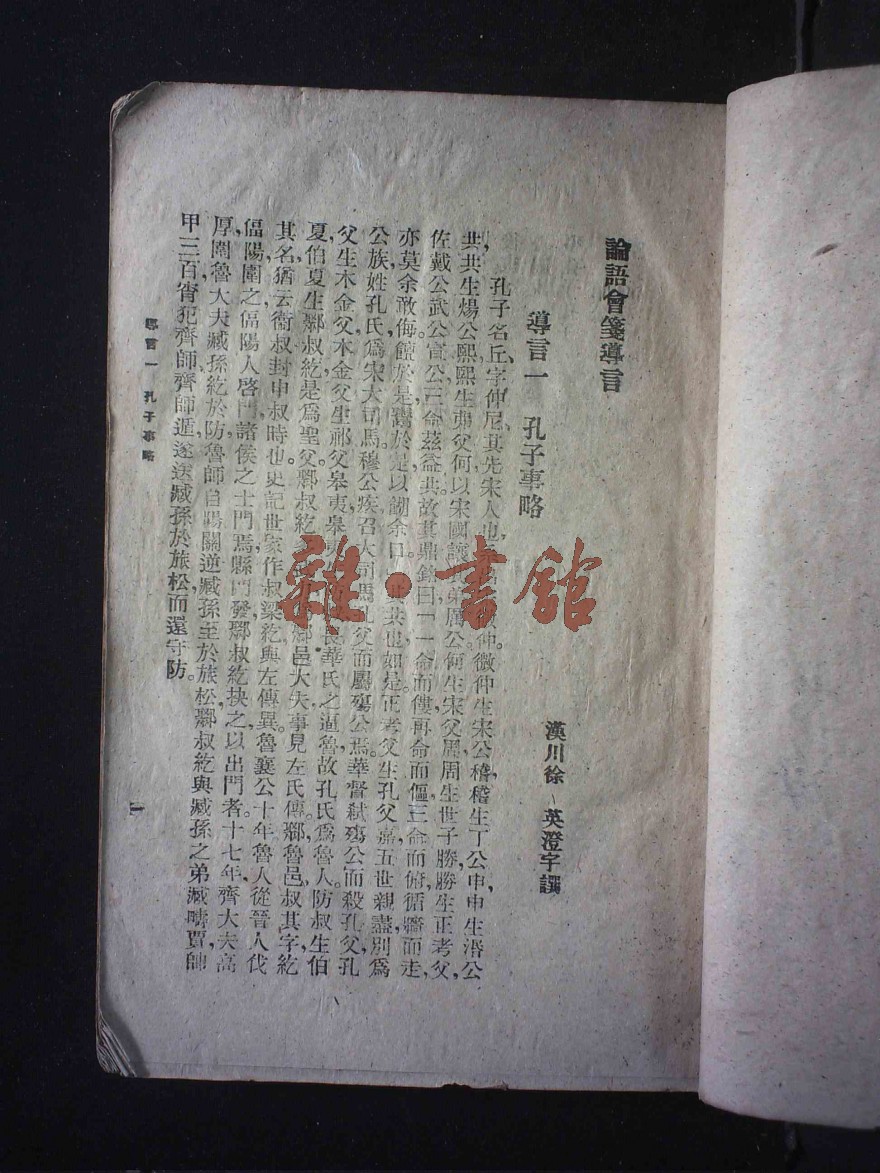 論語會箋導言
漢川徐 英澄宇譔
導言一 孔子事略
孔子名丘,字仲尼,其先宋人也,微仲。微仲生宋公稽,稽生丁公申,申生湣公
共,共生煬公熙,熙生弗父何,以宋國讓其弟厲公,何生宋父周,周生世子勝,勝生正考父,
佐戴公武公宣公,三命茲益共,故其鼎銘曰,「一命而僂,再命而傴,三命而俯,循牆而走,
亦莫余敢侮,饘於是,鬻於是,以餬余口。」其共也如是,正考父生孔父嘉,五世親盡,別爲
公族,姓孔氏,爲宋大司馬,穆公疾,召大司馬孔父而屬殤公焉,華督弒殤公而殺孔父,孔
父生木金父,木金父生祁父,皋夷,畏華氏之逼魯,故孔氏爲魯人,防叔生伯
夏,伯夏生鄹叔紇,是爲聖父,鄹叔紇爲鄹邑大夫,事見左氏傳,鄹魯邑,叔其字,紇
其名,猶云衞叔封申叔時也。史記世家作叔梁紇,與左傳異,魯襄公十年,魯人從晉人伐
偪陽,圍之,偪陽人啓門,諸侯之士門焉,縣門發,鄹叔紇抉之以出門者。十七年,齊大夫高
厚圍魯大夫臧孫紇於防,魯師自陽關逆臧孫,至於旅松,鄹叔紇與臧孫之弟臧疇賈帥
甲三百,宵犯齊師,齊師遁,遂送臧孫於旅松而還守防。
導言一 孔子事略
一
雜·書館